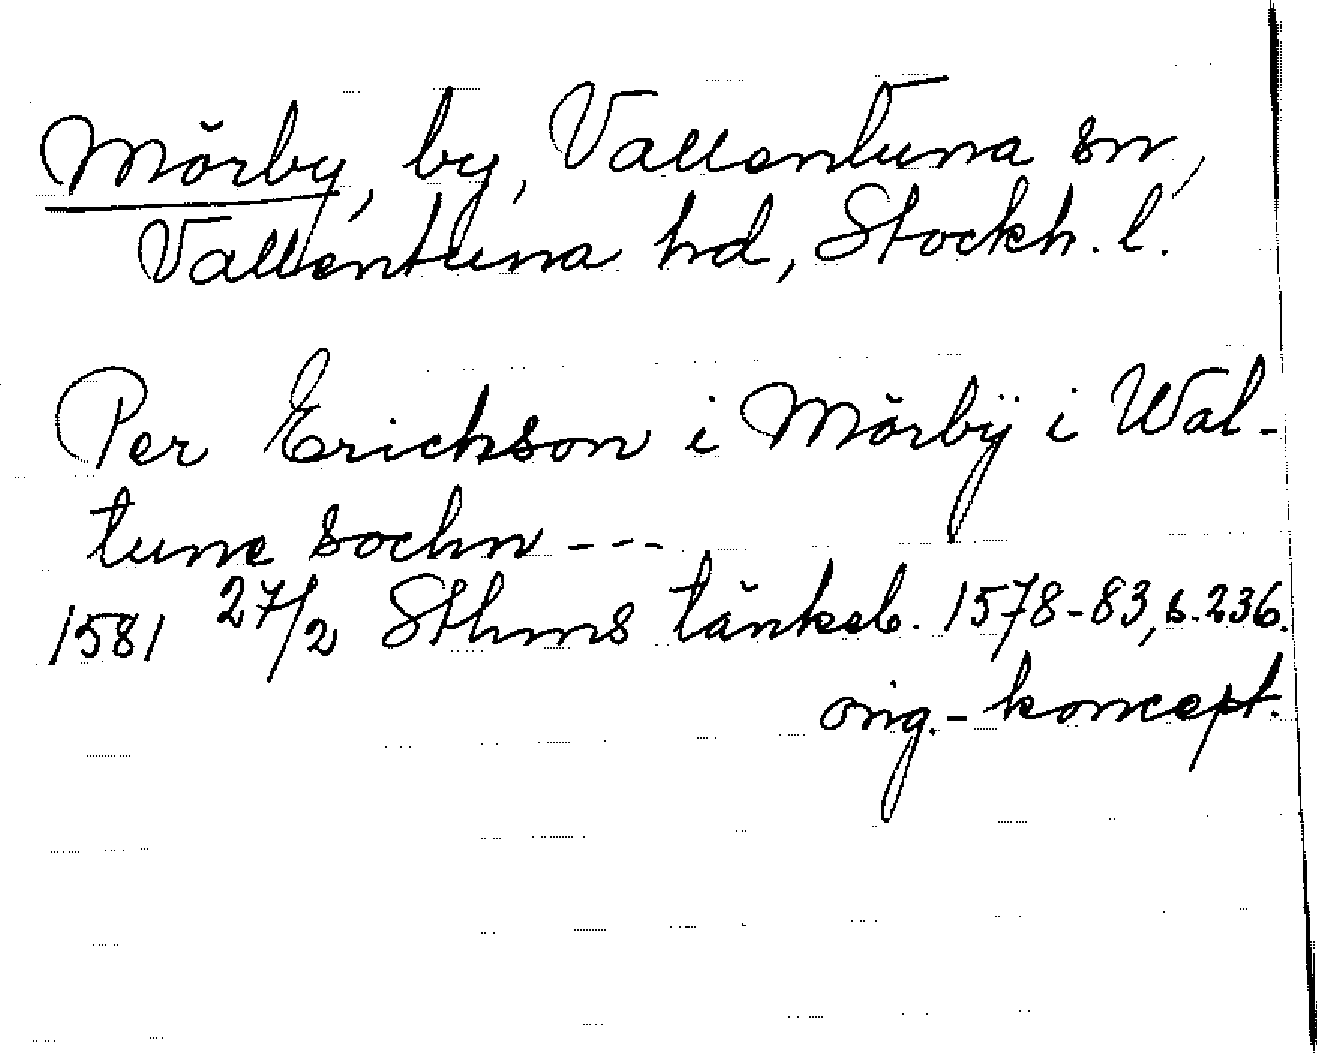 Mörby, by, Vallentuna sn,
Vallentuna hd, Stockh. l.
Per Erickson i Mörbÿ i Wal-
tuna sochn ---
1581 27/2 Sthms tänkeb. 1578-83, s. 236.
orig.-koncept.